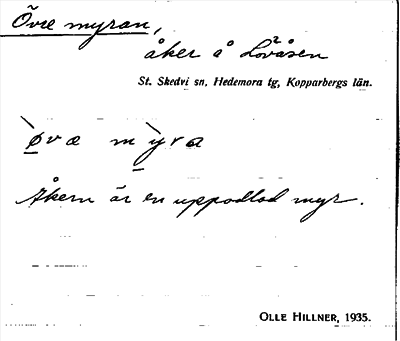 Övre myran,
åker å Lövåsen
St. Skedvi sn, Hedemora tg, Kopparbergs län.
øvæ myra
Åkern är en uppodlad myr.
OLLE HILLNER, 1935.